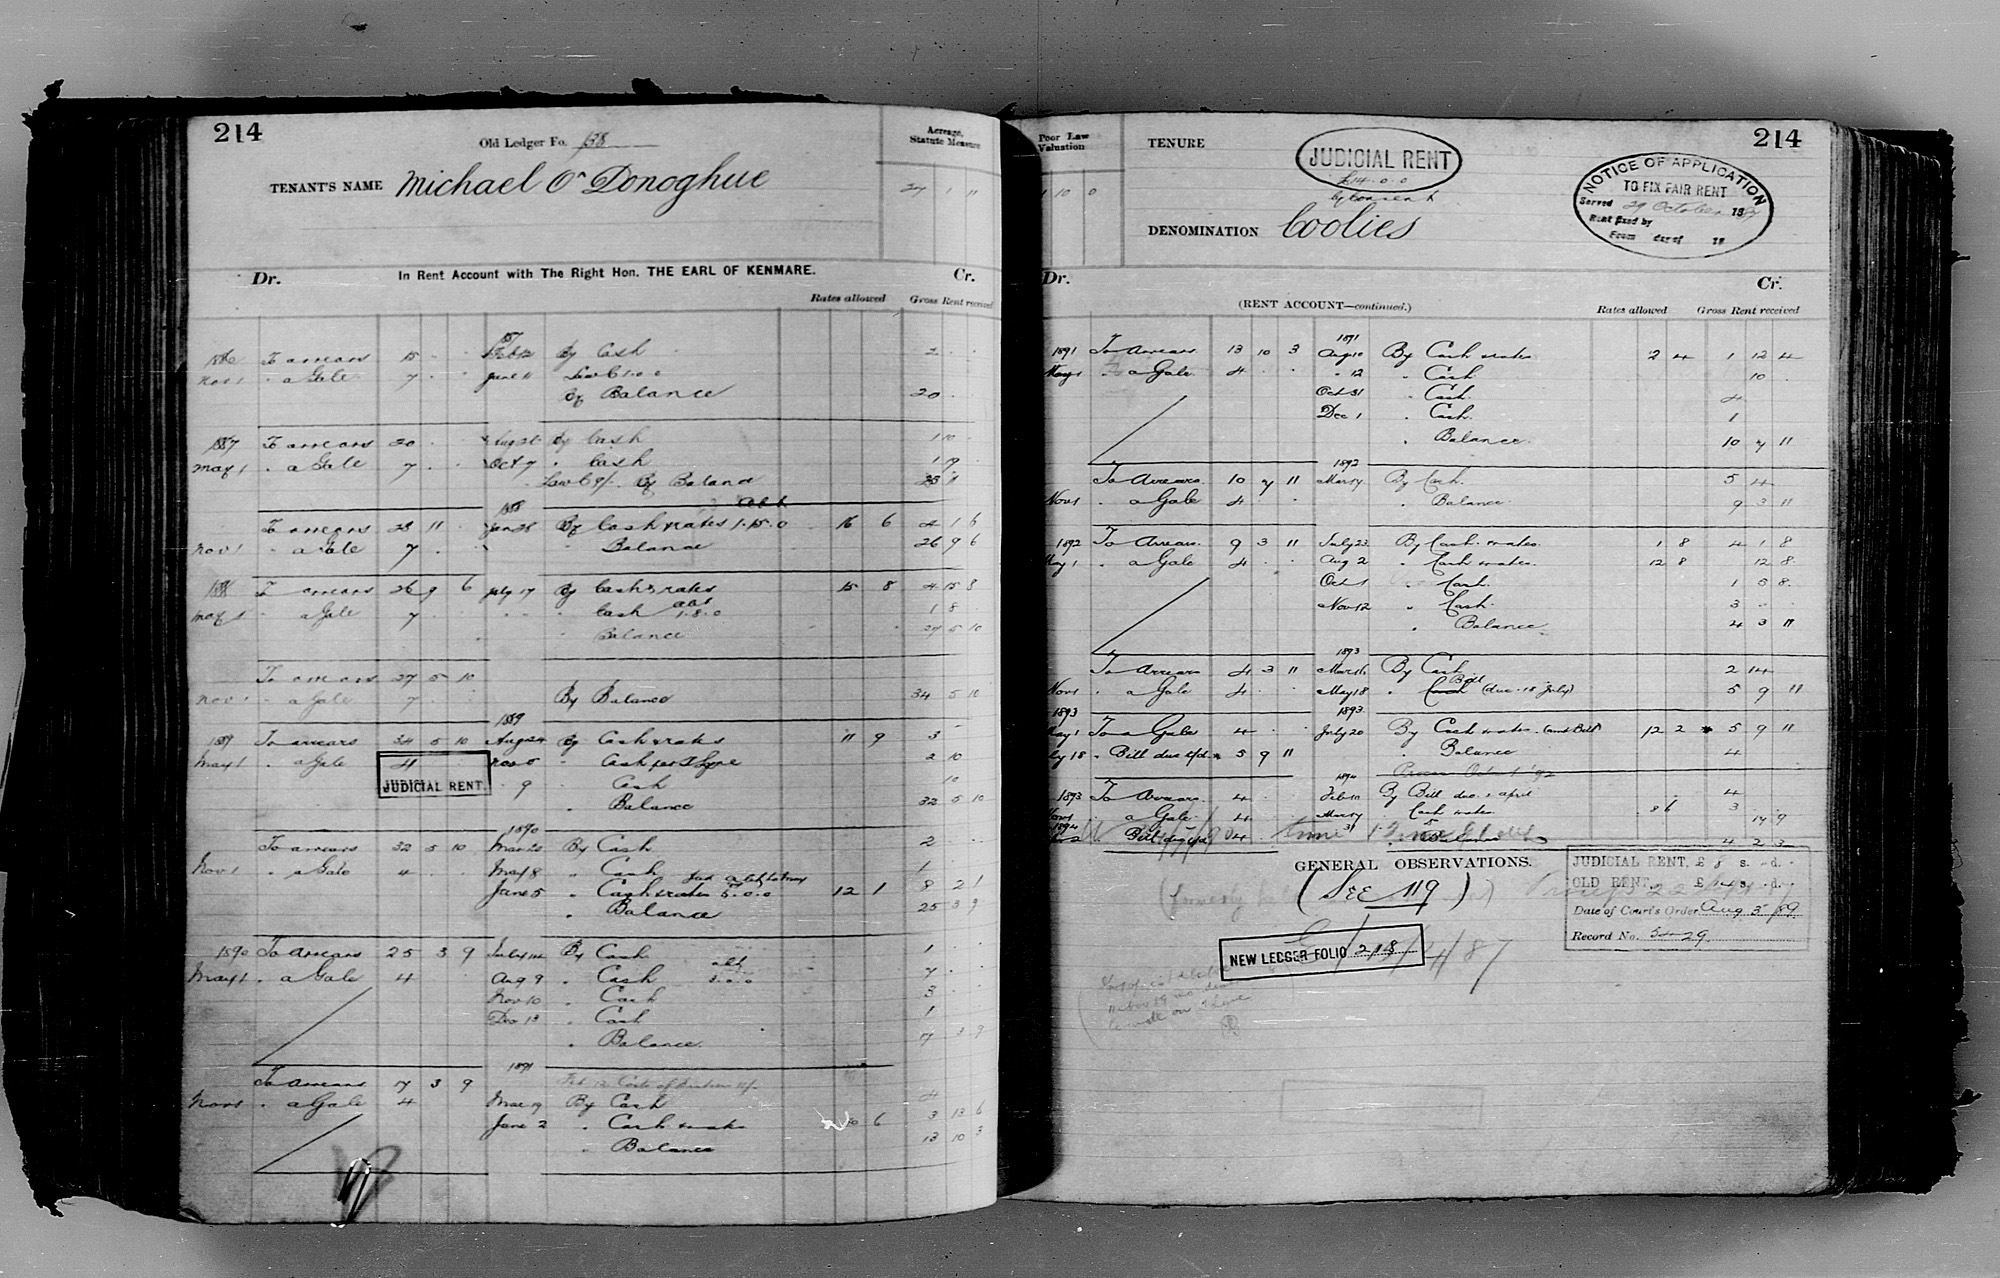 214
Old Ledger Fo. 138
Acreage, Statute Measure
TENANT'S NAME Michael O'Donoghue
27 1 11
Dr. In Rent Account with The Right Hon. THE EARL OF KENMARE. Cr.
Rates allowed Gross Rent received
1886 To arrears 15 . . Feb 12 By Cash 2 . .
Nov 1 " a Gale 7 . . June 11 Law C 1.0.0
By Balance 20 . .
1887 To arrears 20 . . Aug 25 By Cash 1 10 .
May 1 " a Gale 7 . . Oct 7 " Cash 1 19 .
Law C 9/- By Balance 23 11 .
1888 abt
To arrears 23 11 . Jan 28 By Cash & rates 1.15.0 16 6 4 1 6
Nov 1 " a Gale 7 . . " Balance 26 9 6
1888 To arrears 26 9 6 July 17 By Cash & rates 15 8 4 15 8
May 1 " a Gale 7 . . " Cash abt 1.8.0 1 8 .
" Balance 27 5 10
To arrears 27 5 10
Nov 1 " a Gale 7 . . By Balance 34 5 10
1889
1889 To arrears 34 5 10 Aug 24 By Cash & rates 11 9 3 . .
May 1 " a Gale 4 . . Nov 5 " Cash per Lyne 2 10 .
JUDICIAL RENT. " 9 " Cash 10 .
" Balance 32 5 10
1890
To arrears 32 5 10 Mar 20 By Cash 2 . .
Nov 1 " a Gale 4 . . May 8 " Cash 1 . .
June 5 " Cash & rates 5.0.0 12 1 8 2 1
" Balance 25 3 9
1890 To Arrears 25 3 9 July 14 By Cash 1 . .
May 1 " a Gale 4 . . Aug 9 " Cash abt 3.0.0 7 . .
Nov 10 " Cash 3 . .
Dec 13 " Cash 1 . .
" Balance 17 3 9
1891
To Arrears 17 3 9 Feb 12 Costs of
Nov 1 " a Gale 4 . . Mar 19 By Cash 4 . .
June 2 " Cash & rates 10 6 3 13 6
" Balance 13 10 3
Poor Law Valuation
1 10 0
TENURE
JUDICIAL RENT
£14.0.0
by consent
214
NOTICE OF APPLICATION
TO FIX FAIR RENT
Served 29 October 1887
Rent fixed by
From day of 18
DENOMINATION Coolies
Dr. Cr.
(RENT ACCOUNT—continued.) Rates allowed Gross Rent received
1891
1891 To Arrears 13 10 3 Aug 10 By Cash & rates 2 4 1 12 4
May 1 " a Gale 4 . . " 12 " Cash 10 .
Oct 31 " Cash 4 . .
Dec 1 " Cash 1 . .
" Balance 10 7 11
1892
To Arrears 10 7 11 Mar 17 By Cash 5 4 .
Nov 1 " a Gale 4 . . " Balance 9 3 11
1892 To Arrears 9 3 11 July 23 By Cash & rates 1 8 4 1 8
May 1 " a Gale 4 . . Aug 2 " Cash & rates 12 8 12 8
Oct 1 " Cash 1 5 8
Nov 12 " Cash 3 . .
" Balance 4 3 11
1893
To Arrears 4 3 11 Mar 16 By Cash 2 14 .
Nov 1 " a Gale 4 . . May 18 " Bill (due 18 July) 5 9 11
1893 1893
May 1 To a Gale 4 . . July 20 By Cash & rates (and Bill) 12 2 * 5 9 11
July 18 " Bill due * 5 9 11 " Balance 4 . .
1894 Process Oct 1 '92
1893 To Arrears 4 . . Feb 10 By Bill due 2 April 4 . .
Nov 1 " a Gale 4 . . Mar 17 " Cash & rates 8 6 3 17 9
1894 Bill 4 . . " Balance 4 2 3
GENERAL OBSERVATIONS.
(SEE 119)
JUDICIAL RENT, £ 8 s. - d. -
OLD RENT, £ 14 s. - d. -
Date of Court's Order Aug 5 /89
Record No. 5429
NEW LEDGER FOLIO 218